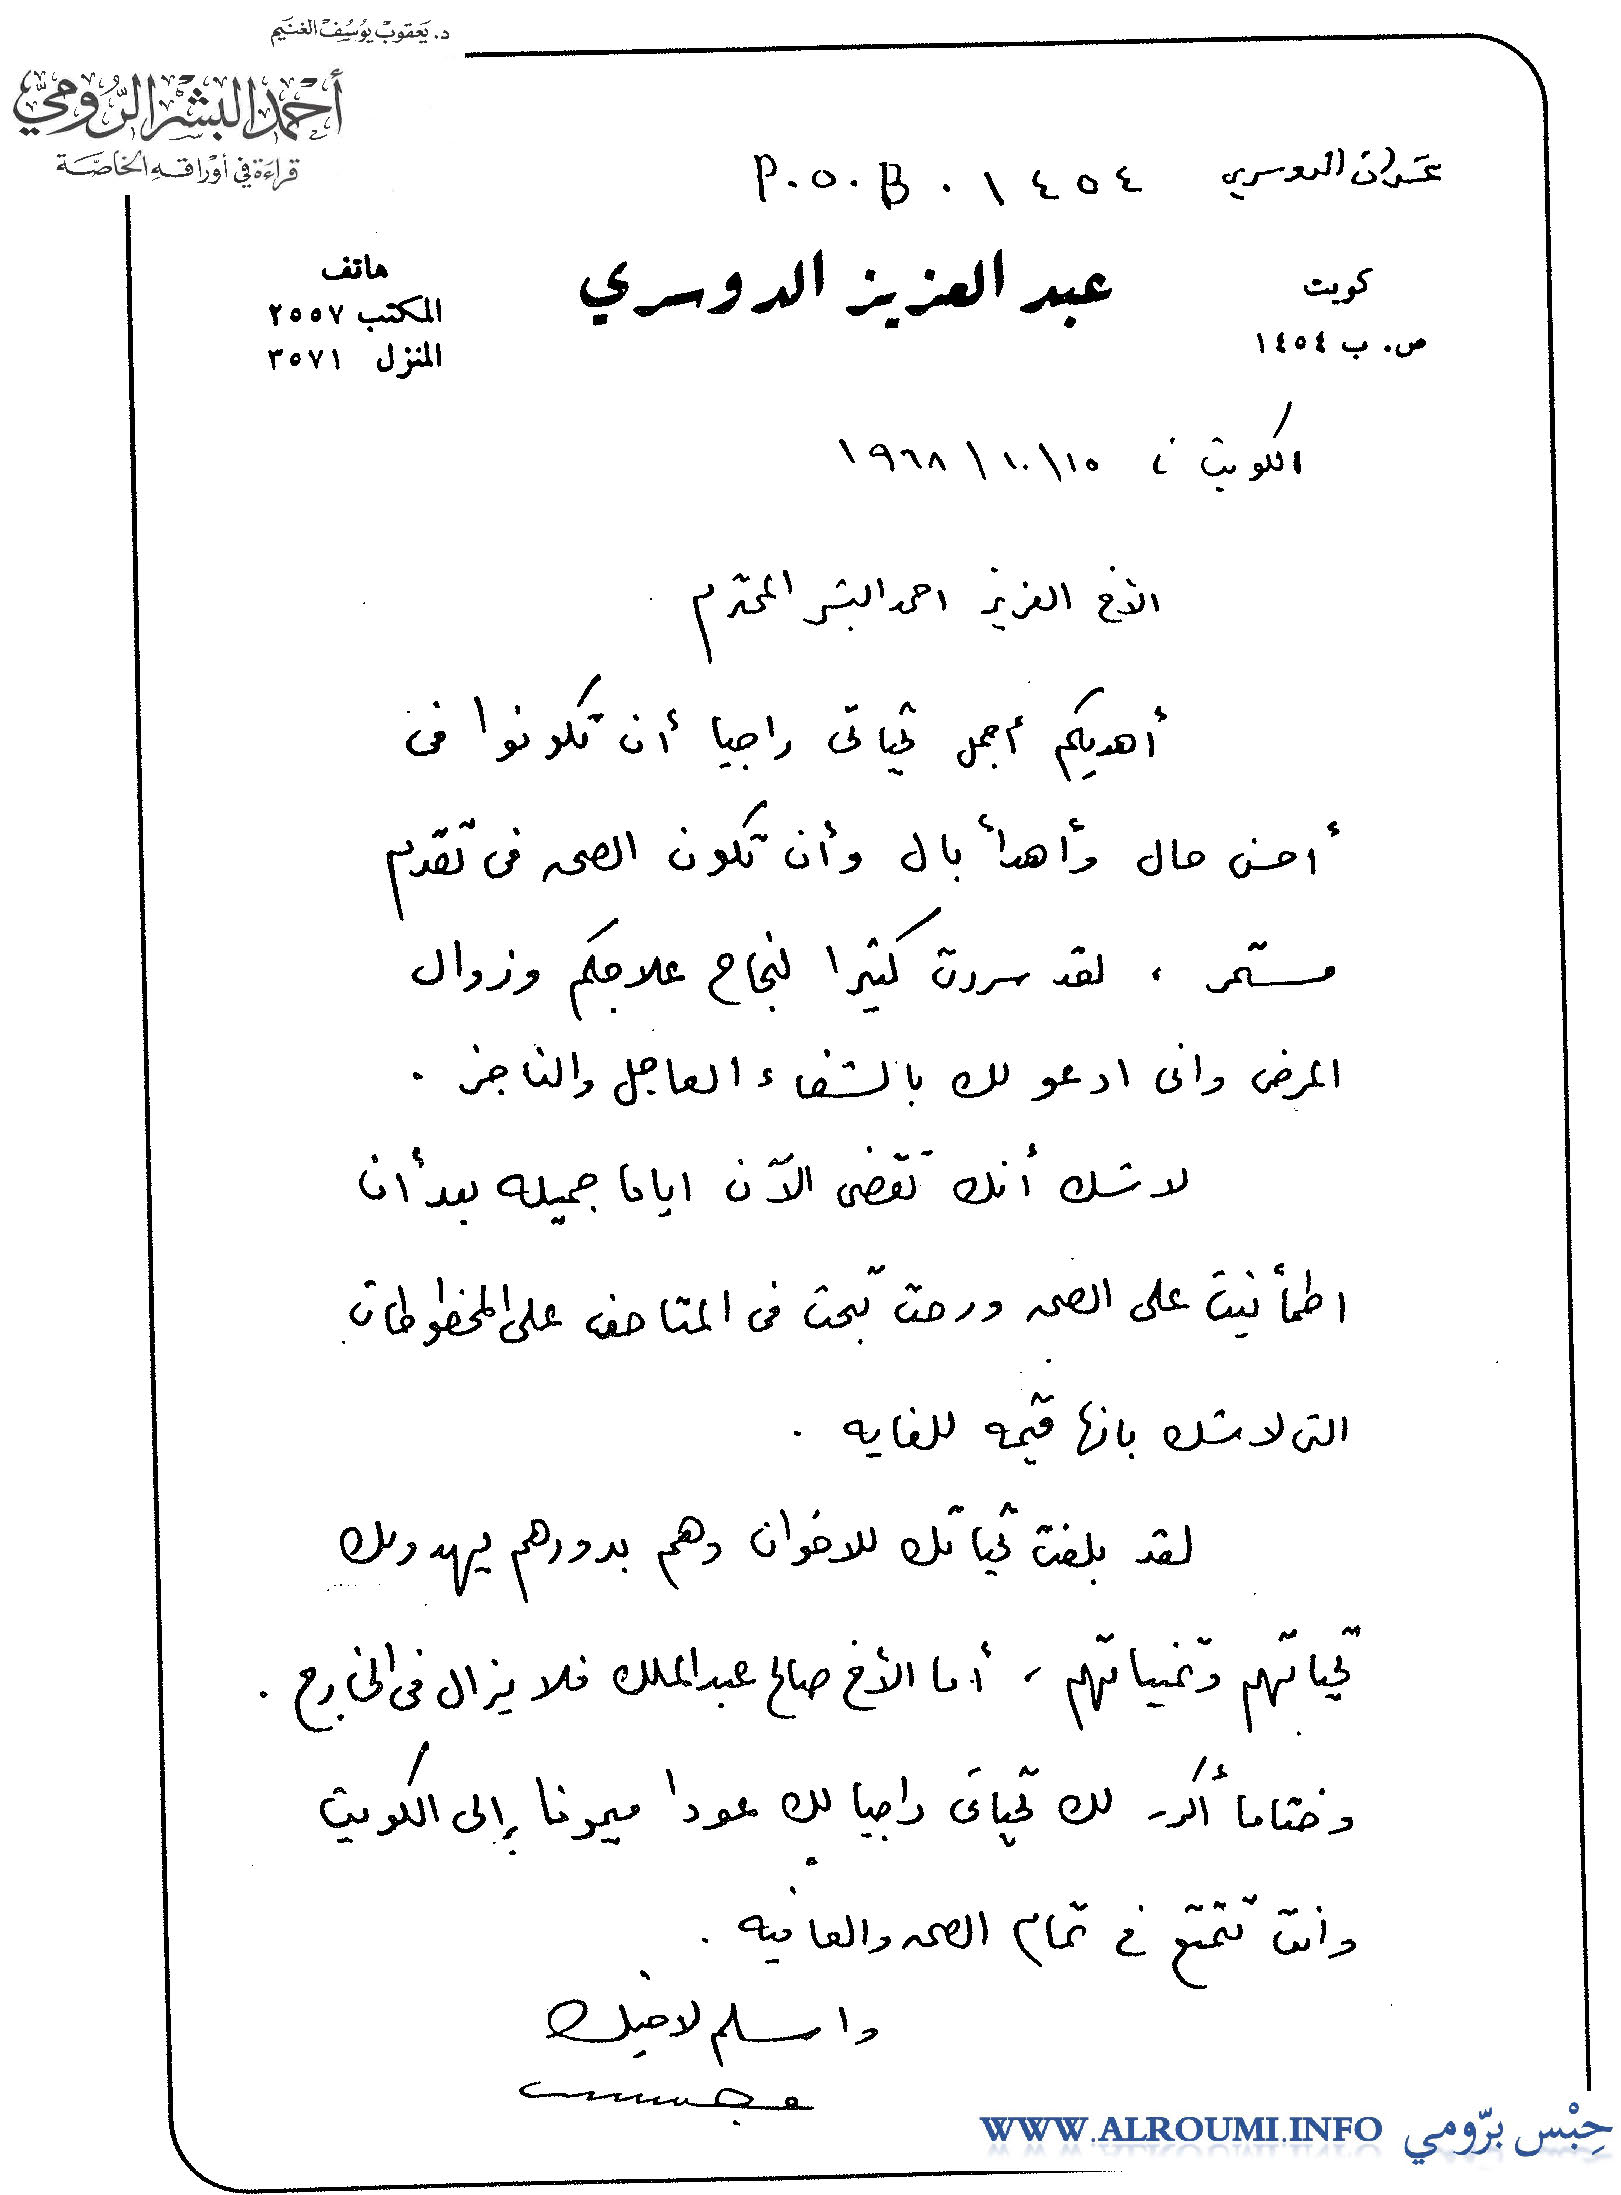 د. يَعقوبْ يوُسُفْ الغنَيم
أحْمَدُ البشْر الرُّومي
قراءَة في أوْراقهِ الخاصَّة
عنوان الدوسري P.O.B. ١٤٥٤
كويت
ص. ب ١٤٥٤
عبد العزيز الدوسري
هاتف
المكتب ٢٥٥٧
المنزل ٣٥٧١
الكويت ، ١٥/١٠/١٩٦٨
الأخ العزيز احمد البشر المحترم
أهديكم أجمل تحياتى راجيا أن تكونوا فى
أحسن حال وأهدأ بال وأن تكون الصحه فى تقدم
مستمر ، لقد سررت كثيرا لنجاح علاجكم وزوال
المرض وانى ادعو لك بالشفاء العاجل والناجز .
لاشك أنك تقضى الآن اياما جميله بعد أن
اطمأنيت على الصحه ورحت تبحث فى المتاحف على المخطوطات
التى لاشك بانها قيمه للغايه .
لقد بلغت تحياتك للاخوان وهم بدورهم يهدونك
تحياتهم وتمنياتهم ، أما الأخ صالح عبدالملك فلا يزال فى الخارج .
وختاما أكرر لك تحياتى راجيا لك عودا ميمونا إلى الكويت
وانت تتمتع في تمام الصحه والعافيه .
واسلم لاخيك
WWW.ALROUMI.INFO حِبْس برّومي